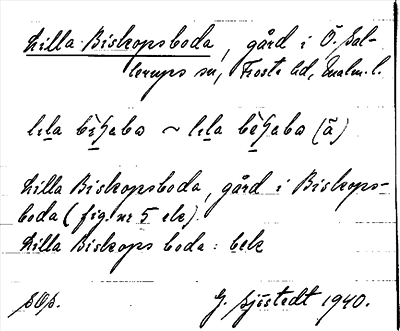 Lilla Biskopsboda, gård i Ö. Sal-
lerups sn, Frosta hd, Malm. l.
lila
Lilla Biskopsboda, gård i Biskops-
boda (fig. nr 5 ek)
Lilla Biskops boda: bek
SOS. G. Sjöstedt 1940.